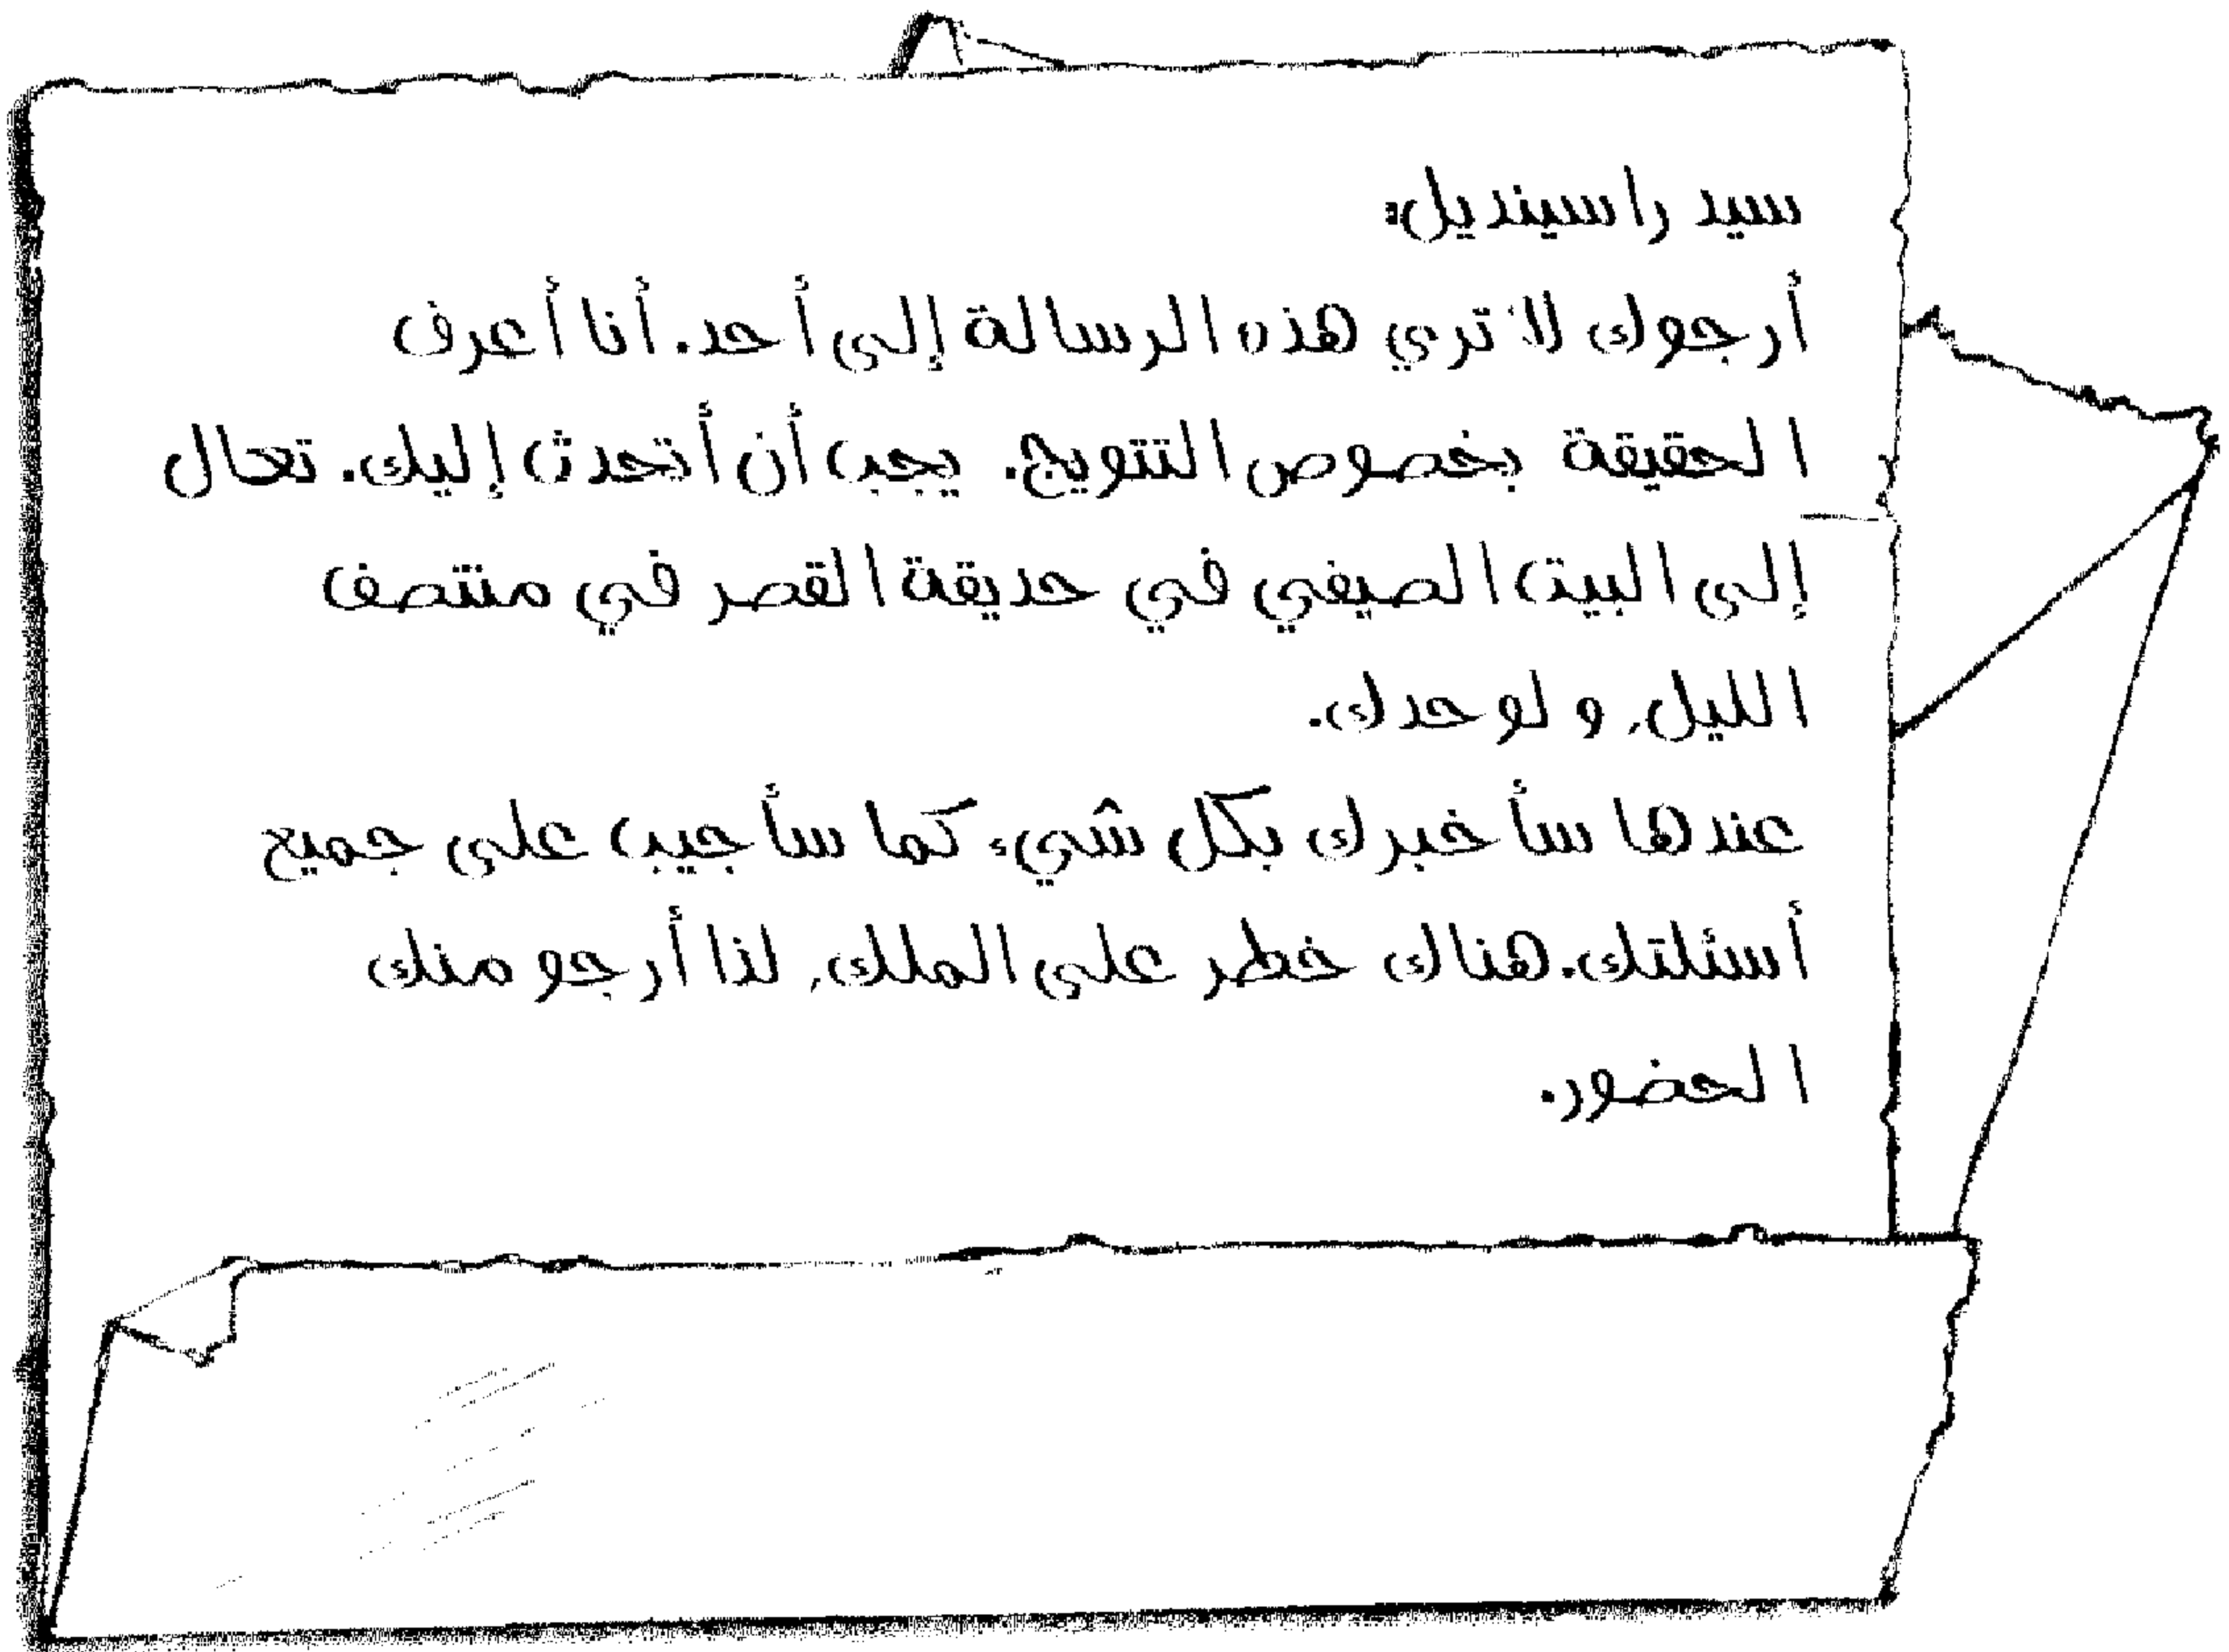 سيد راسينديل:
أرجوك لا تري هذه الرسالة إلى أحد. أنا أعرف
الحقيقة بخصوص التتويج. يجب أن أتحدث إليك. تعال
إلى البيت الصيفي في حديقة القصر في منتصف
الليل, و لوحدك.
عندها سأخبرك بكل شيء كما سأجيب على جميع
أسئلتك. هناك خطر على الملك, لذا أرجو منك
الحضور.